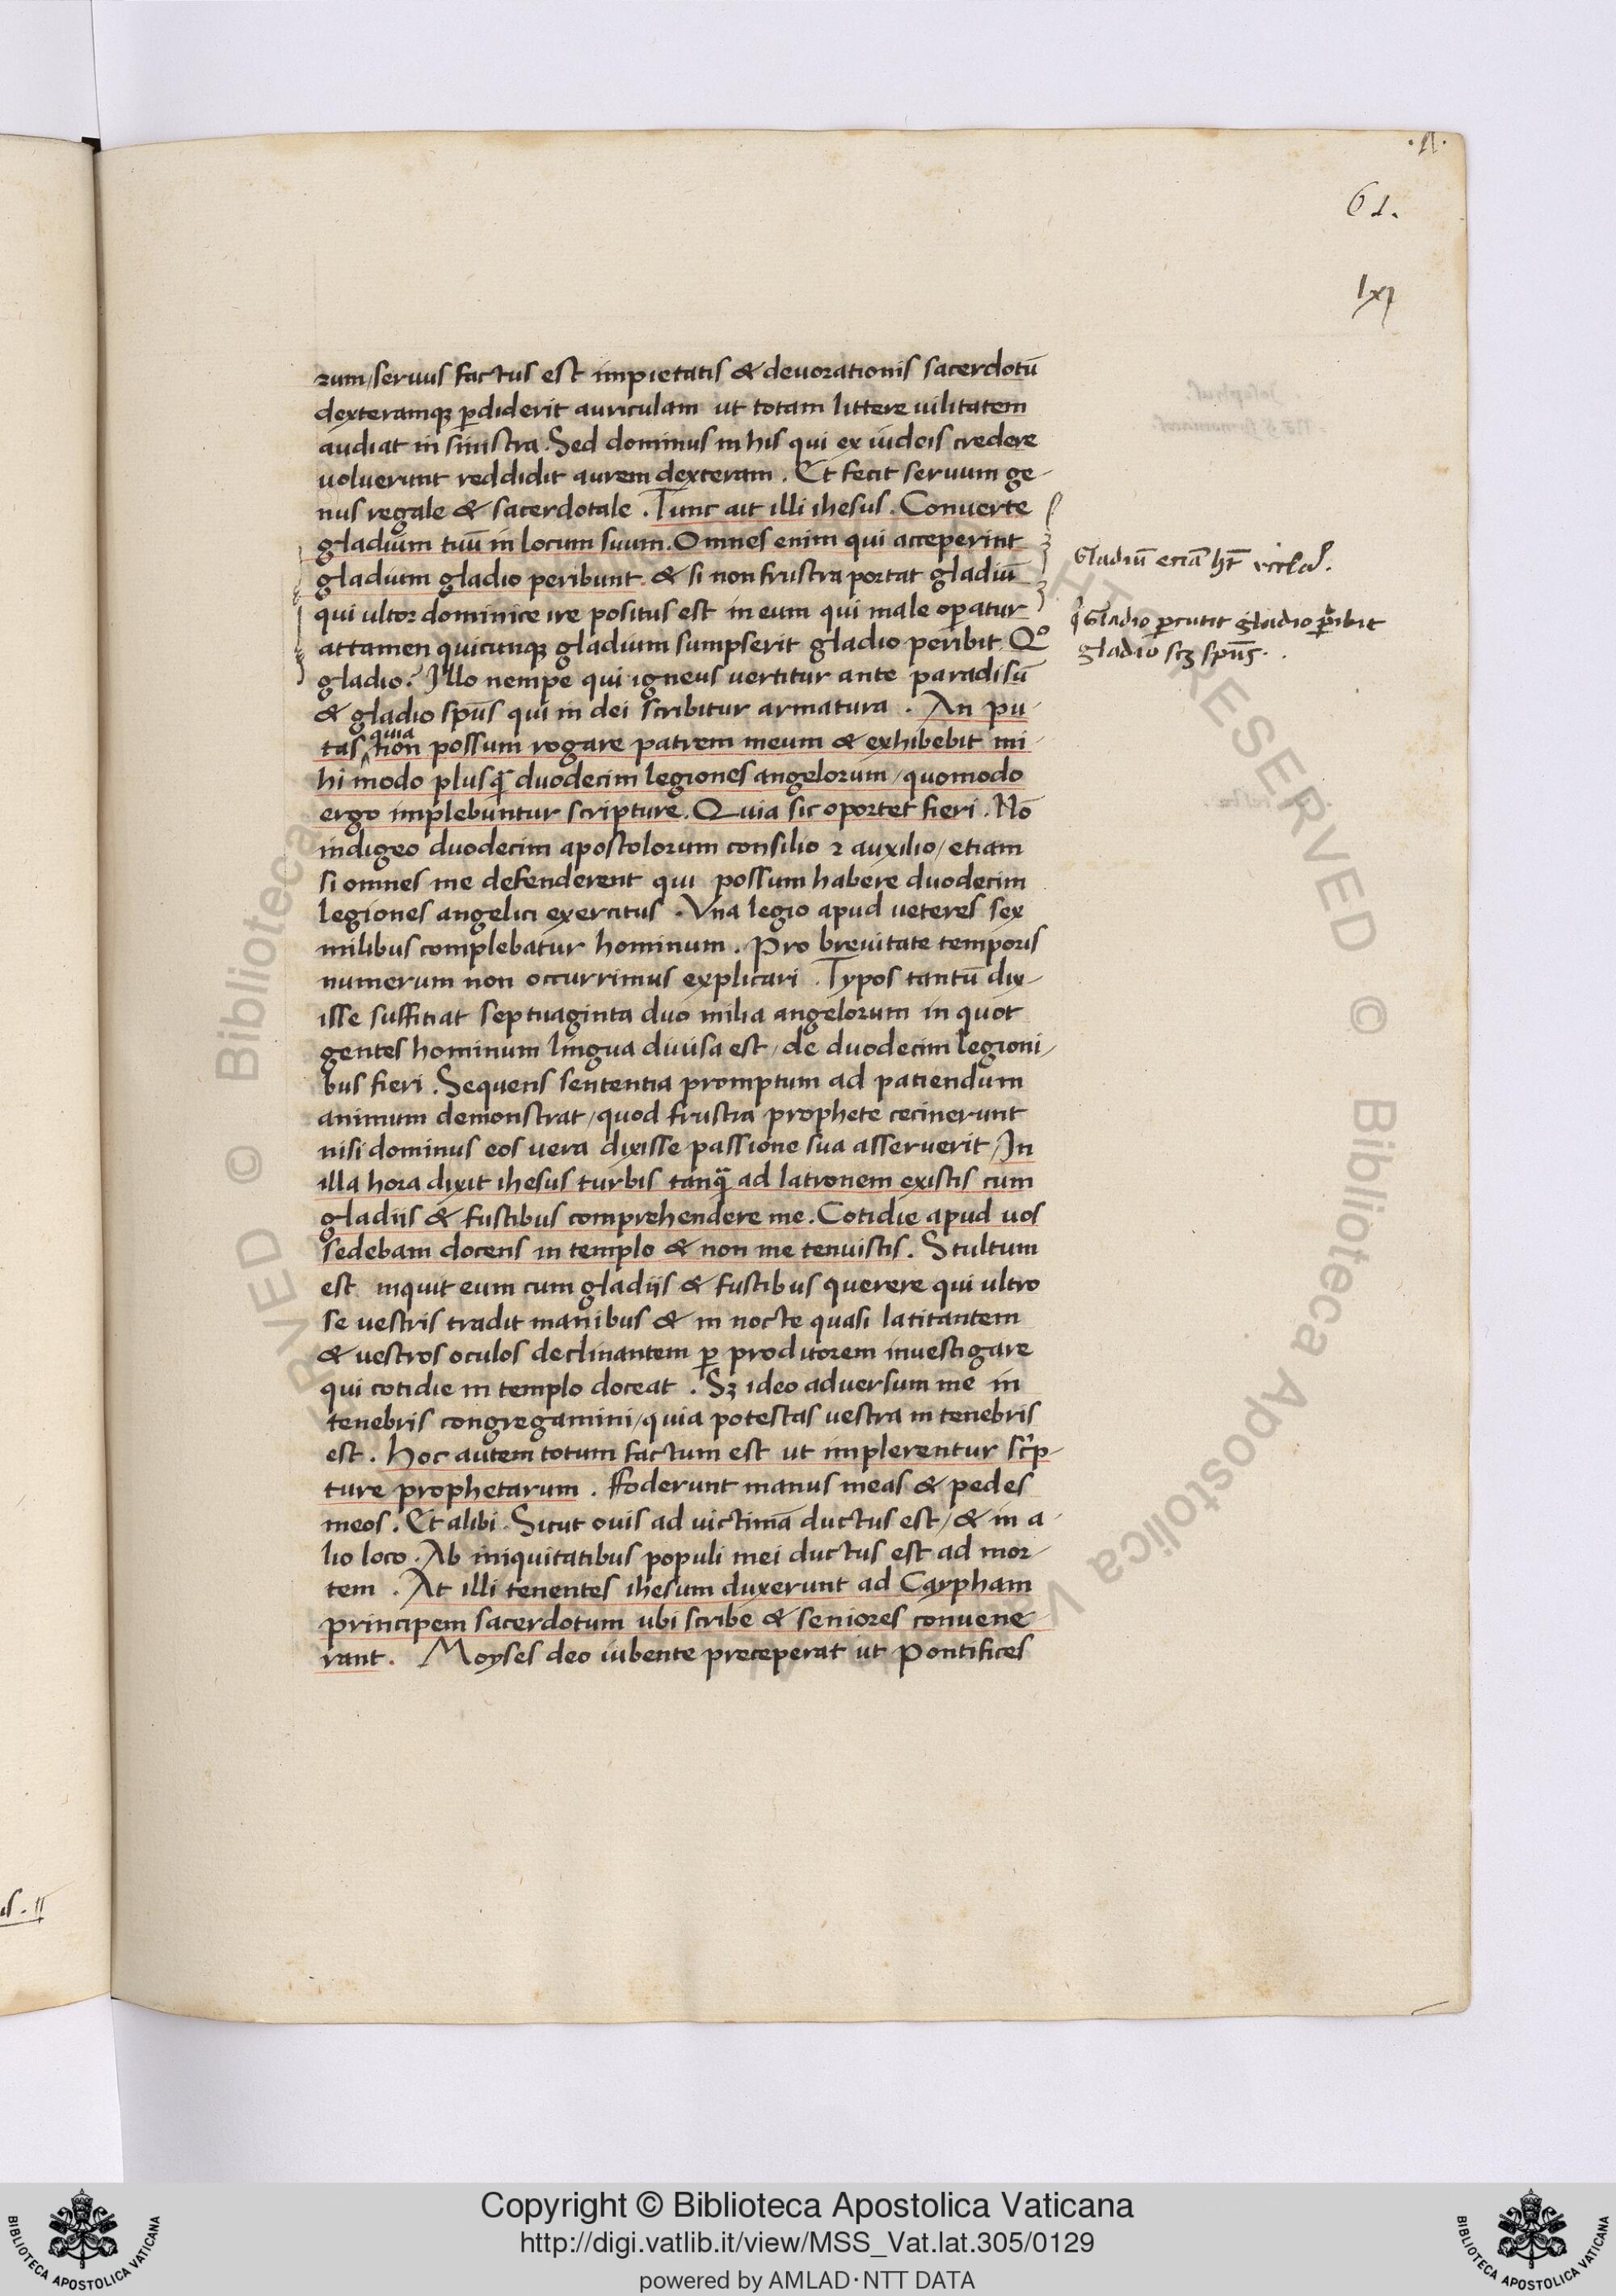 .A.
61.
lxj
rum/servus factus est impietatis & devorationis sacerdotū
dexteramqꝫ ꝑdiderit auriculam ut totam littere vilitatem
audiat in sinistra. Sed dominus in his qui ex iudeis credere
voluerunt reddidit aurem dexteram. Et fecit servum ge-
nus regale & sacerdotale. Tunc ait illi ihesus. Converte
gladium tuū in locum suum. Omnes enim qui acceperint
gladium gladio peribunt. & si non frustra portat gladiū
qui ultor dominice ire positus est in eum qui male oꝑatur
attamen quicunqꝫ gladium sumpserit gladio peribit. Qº
gladio? Illo nempe qui igneus vertitur ante paradisū
& gladio spūs qui in dei scribitur armatura. An pu-
quia
tas ^ non possum rogare patrem meum & exhibebit mi-
hi modo plusq̄ duodecim legiones angelorum/quomodo
ergo implebuntur scripture. Quia sic oportet fieri. Nō
indigeo duodecim apostolorum consilio ⁊ auxilio/etiam
si omnes me defenderent qui possum habere duodecim
legiones angelici exercitus. Una legio apud veteres sex
milibus complebatur hominum. Pro brevitate temporis
numerum non occurrimus explicari. Typos tantū dix-
isse sufficiat septuaginta duo milia angelorum in quot
gentes hominum lingua divisa est/de duodecim legioni-
bus fieri. Sequens sententia promptum ad patiendum
animum demonstrat/quod frustra prophete cecinerunt
nisi dominus eos vera dixisse passione sua asseruerit/In
illa hora dixit ihesus turbis tanq̄ ad latronem existis cum
gladiis & fustibus comprehendere me. Cotidie apud vos
sedebam docens in templo & non me tenuistis. Stultum
est inquit eum cum gladiis & fustibus querere qui ultro
se vestris tradit manibus & in nocte quasi latitantem
& vestros oculos declinantem ꝑ proditorem investigare
qui cotidie in templo doceat. Sꝫ ideo adversum me in
tenebris congregamini/quia potestas vestra in tenebris
est. Hoc autem totum factum est ut implerentur sc̉p-
ture prophetarum. Foderunt manus meas & pedes
meos. Et alibi. Sicut ovis ad victimā ductus est/& in a-
lio loco. Ab iniquitatibus populi mei ductus est ad mor-
tem. At illi tenentes ihesum duxerunt ad Caypham
principem sacerdotum ubi scribe & seniores convene-
rant. Moyses deo iubente preceperat ut Pontifices
Gladiū eciā hꝫt eccl'a.
q̇ Gladio ꝑcutit gladio ꝑibit
gladio scꝫ spūs.
Copyright © Biblioteca Apostolica Vaticana
http://digi.vatlib.it/view/MSS_Vat.lat.305/0129
powered by AMLAD·NTT DATA
BIBLIOTECA APOSTOLICA VATICANA
BIBLIOTECA APOSTOLICA VATICANA